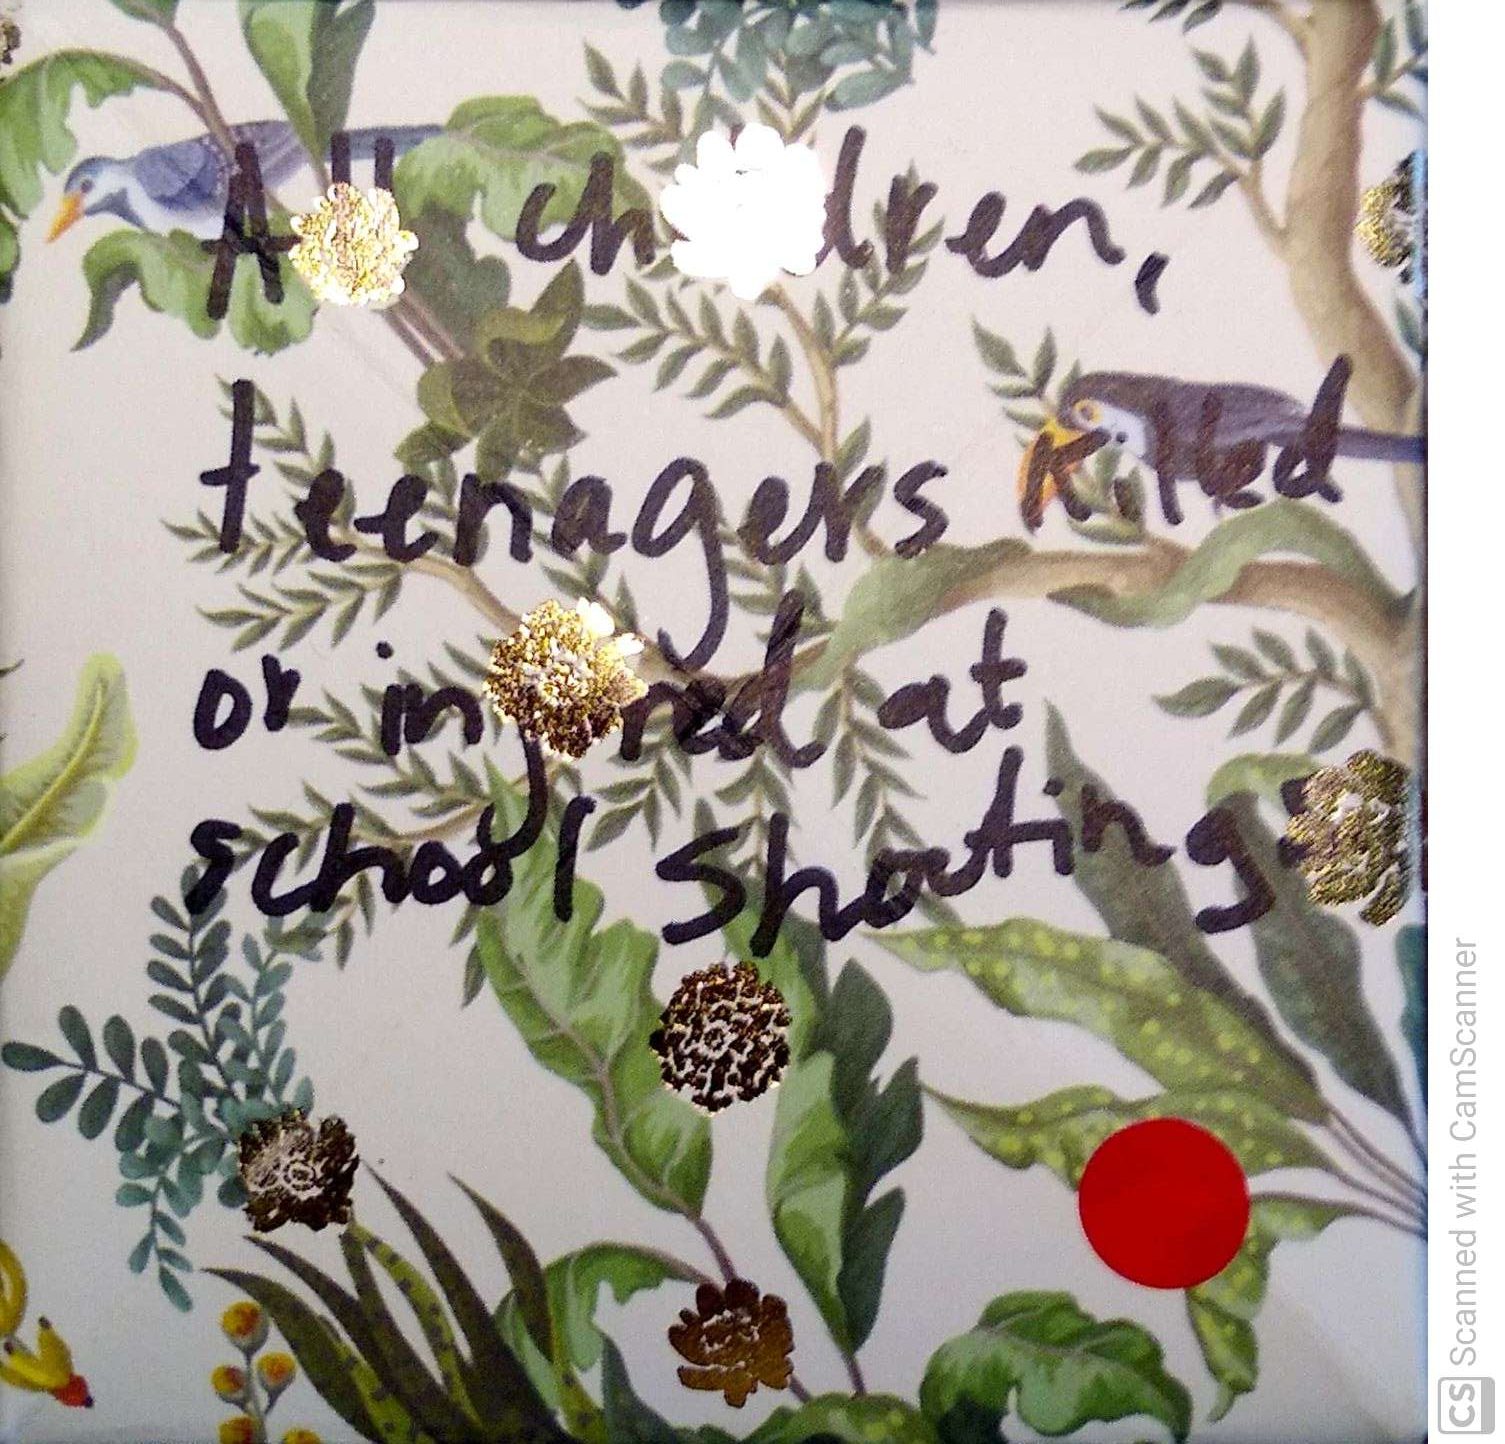 All children,
teenagers killed
or injured at
school shooting
CS Scanned with CamScanner